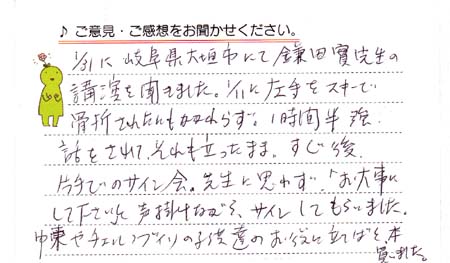 ♪ ご意見・ご感想をお聞かせください。
1/31に岐阜県大垣市にて鎌田實先生の
講演を聞きました。1/1に左手をスキーで
骨折されたにもかかわらず。1時間半強
話をされて、それも立ったまま。すぐ後
片手でのサイン会。先生に思わず「お大事に
して下さい」と声掛けながら、サインしてもらいました。
中東やチェルノブイリの子供達のお役に立てばと、本
買いました。